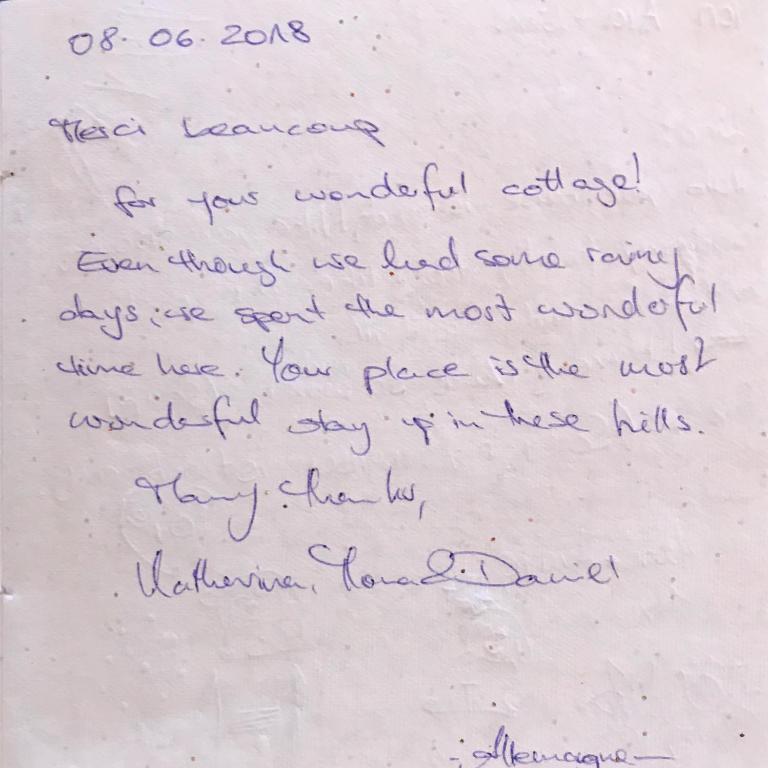 08.06.2018
Merci beaucoup
for your wonderful cottage!
Even though we had some rainy
days, we spent the most wonderful
time here. Your place is the most
wonderful stay up in these hills.
Many thanks,
Katherina, & Daniel
- Allemagne -